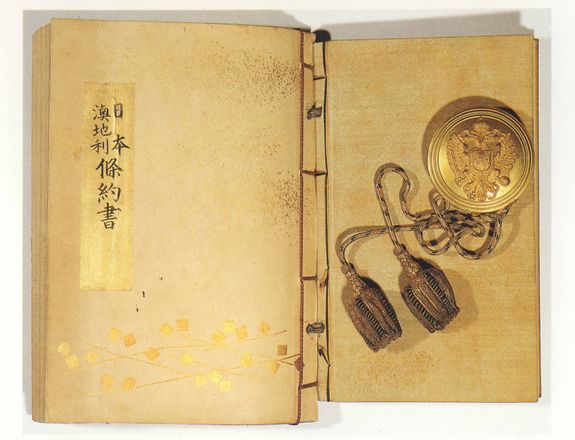 日本
澳地利
條約書